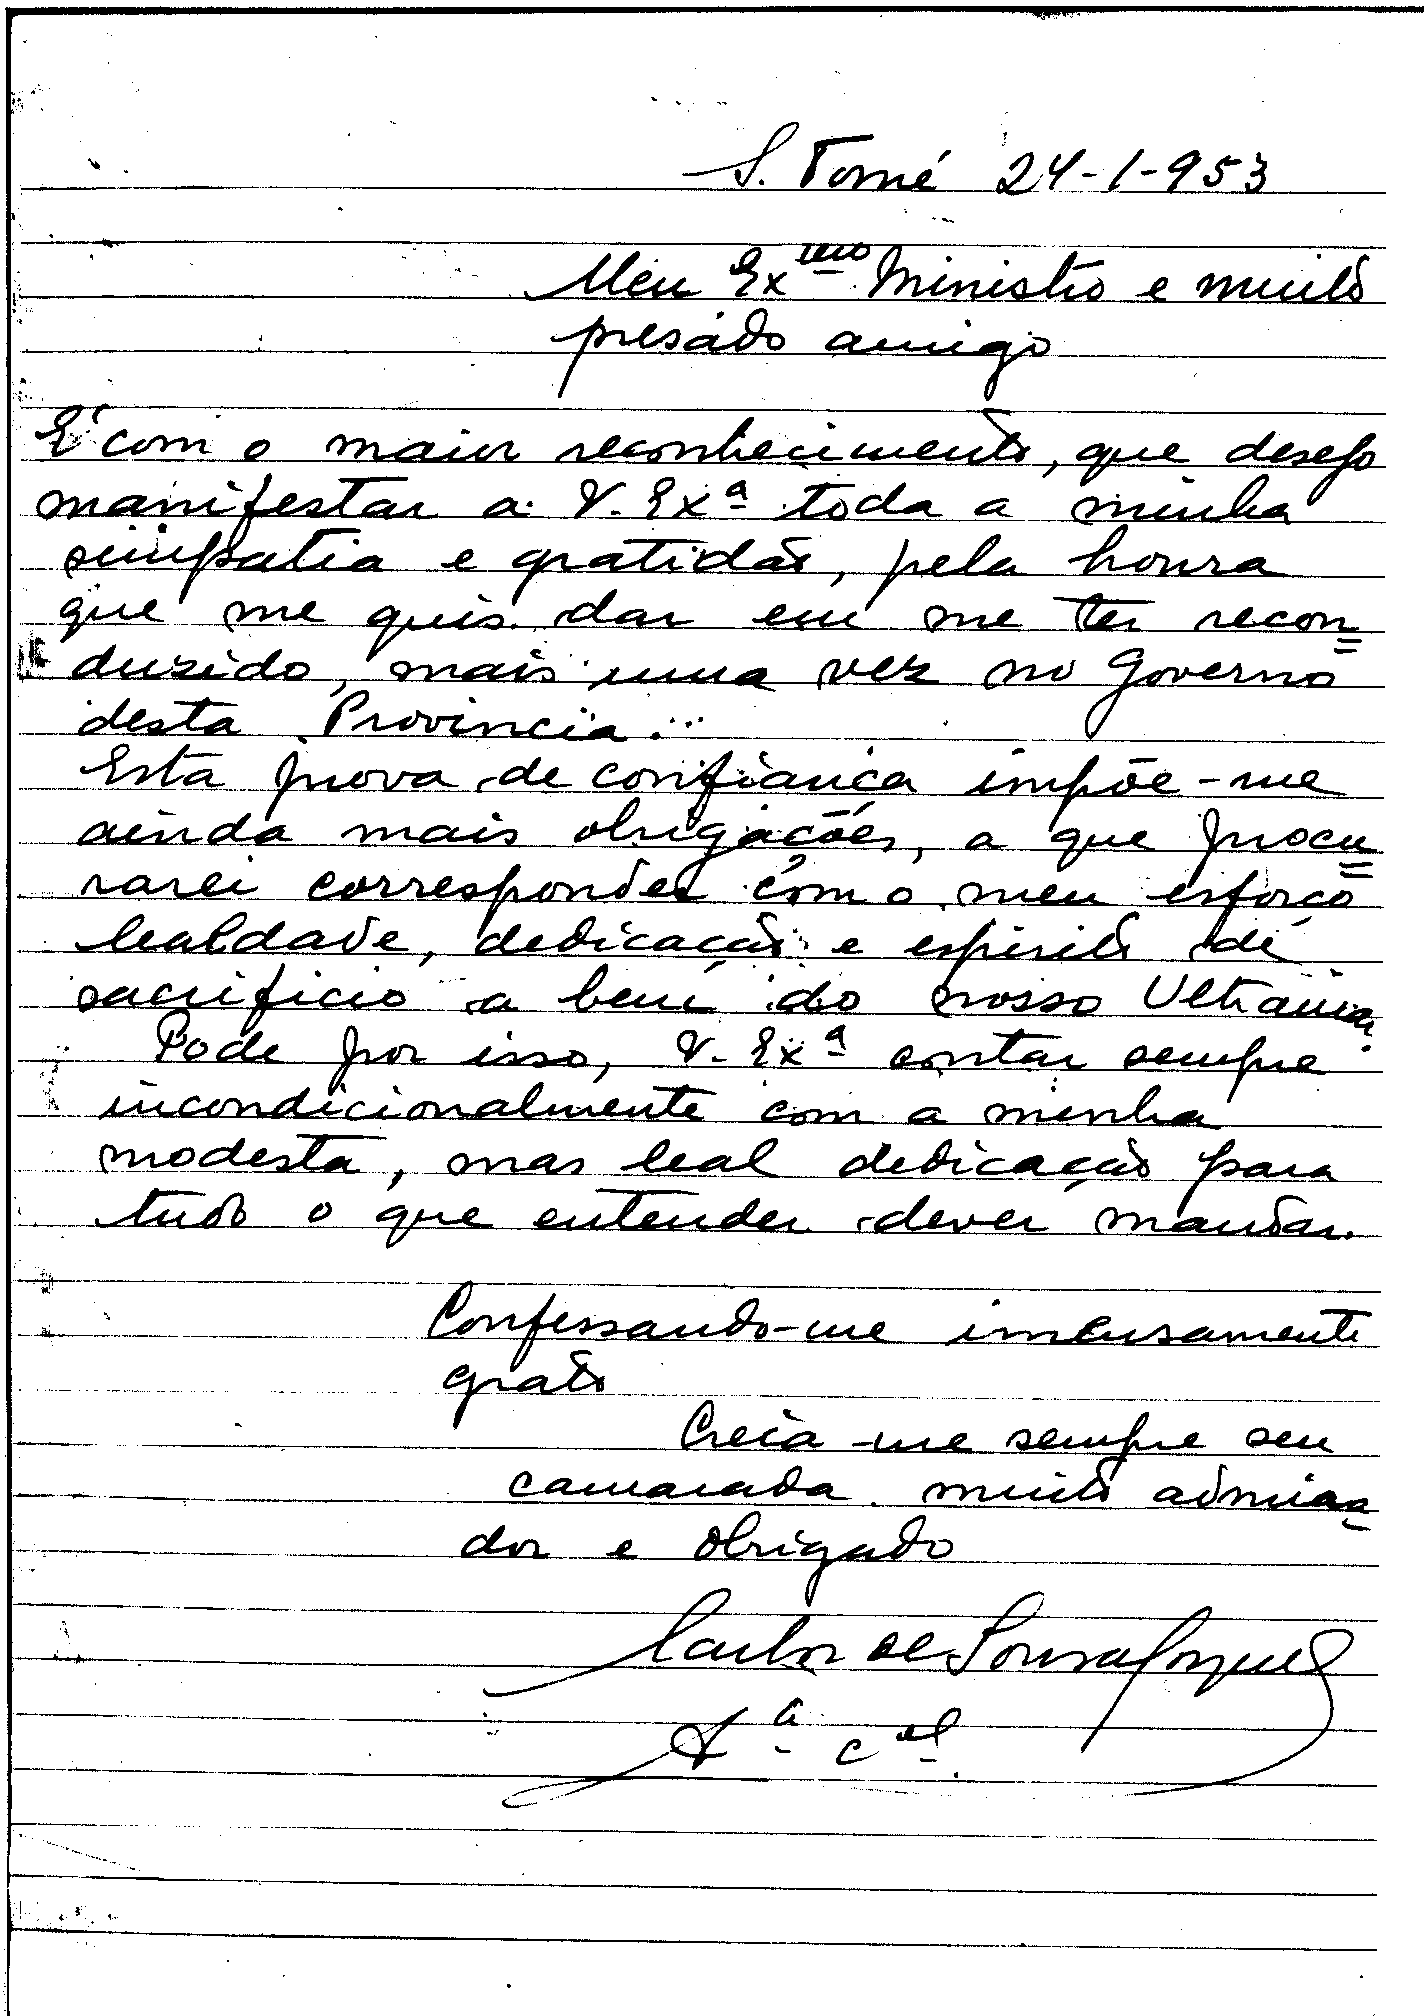 S. Tomé 24-1-953
Meu Exmo Ministro e muito
presado amigo
É com o maior reconhecimento, que desejo
manifestar a V. Exª toda a minha
simpatia e gratidão, pela honra
que me quis dar em me ter recon=
duzido, mais uma vez no Governo
desta Provincia.
Esta prova de confiança impõe-me
ainda mais obrigações, a que procu=
rarei corresponder com o meu esforço
lealdade, dedicação e espirito de
sacrificio a bem do nosso Ultramar.
Pode por isso, V. Exª contar sempre
incondicionalmente com a minha
modesta, mas leal dedicação para
tudo o que entender dever mandar.
Confessando-me imensamente
grato
Creia-me sempre seu
camarada muito admira-
dor e obrigado
Carlos de Sousa Gorgulho